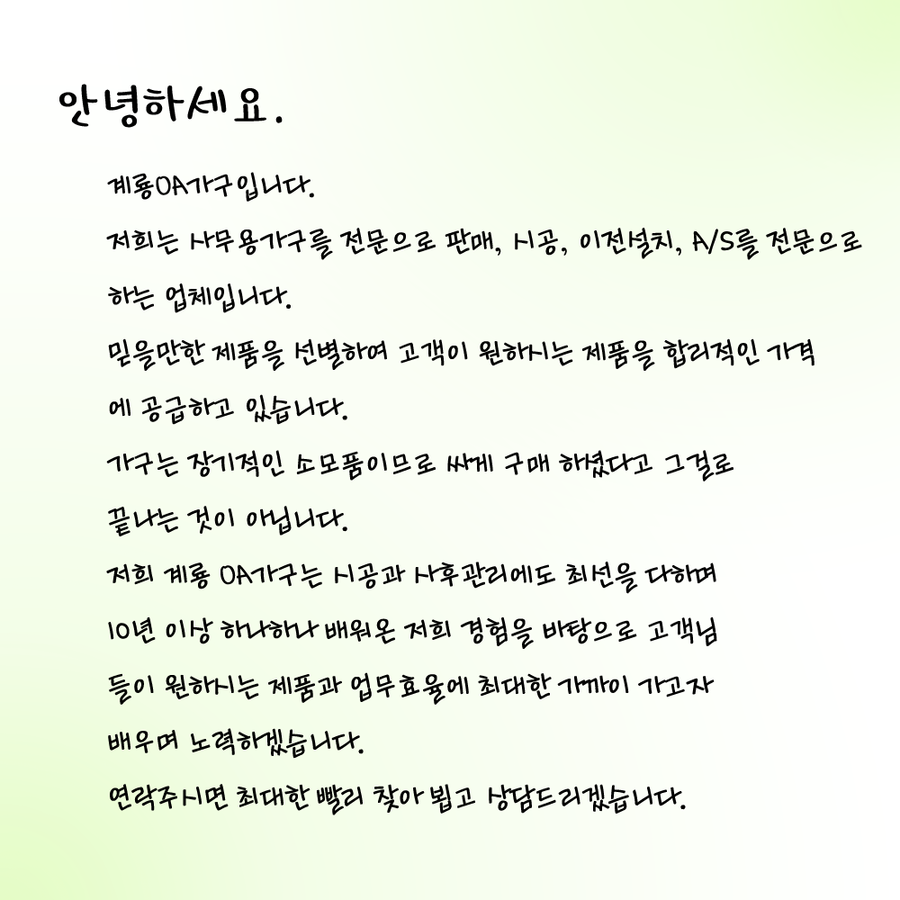 안녕하세요.
계룡OA가구입니다.
저희는 사무용가구를 전문으로 판매, 시공, 이전설치, A/S를 전문으로
하는 업체입니다.
믿을만한 제품을 선별하여 고객이 원하시는 제품을 합리적인 가격
에 공급하고 있습니다.
가구는 장기적인 소모품이므로 싸게 구매 하셨다고 그걸로
끝나는 것이 아닙니다.
저희 계룡 OA가구는 시공과 사후관리에도 최선을 다하며
10년 이상 하나하나 배워온 저희 경험을 바탕으로 고객님
들이 원하시는 제품과 업무효율에 최대한 가까이 가고자
배우며 노력하겠습니다.
연락주시면 최대한 빨리 찾아 뵙고 상담드리겠습니다.